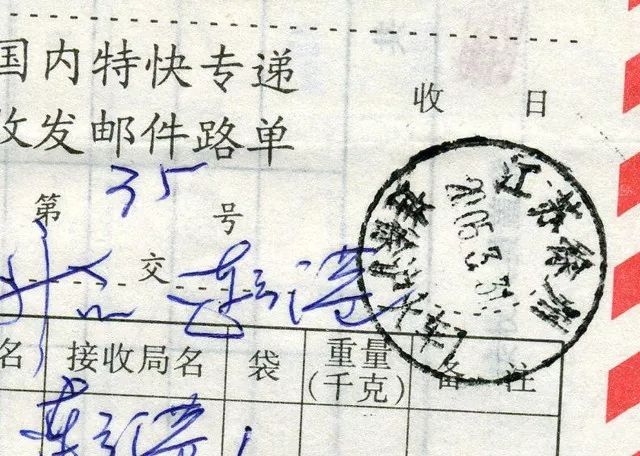 国内特快专递
收发邮件路单
收 日
第 35 号
交 连云港
江苏徐州
2005.3.31
名 接收局名 袋 重量(千克) 备注
连云港